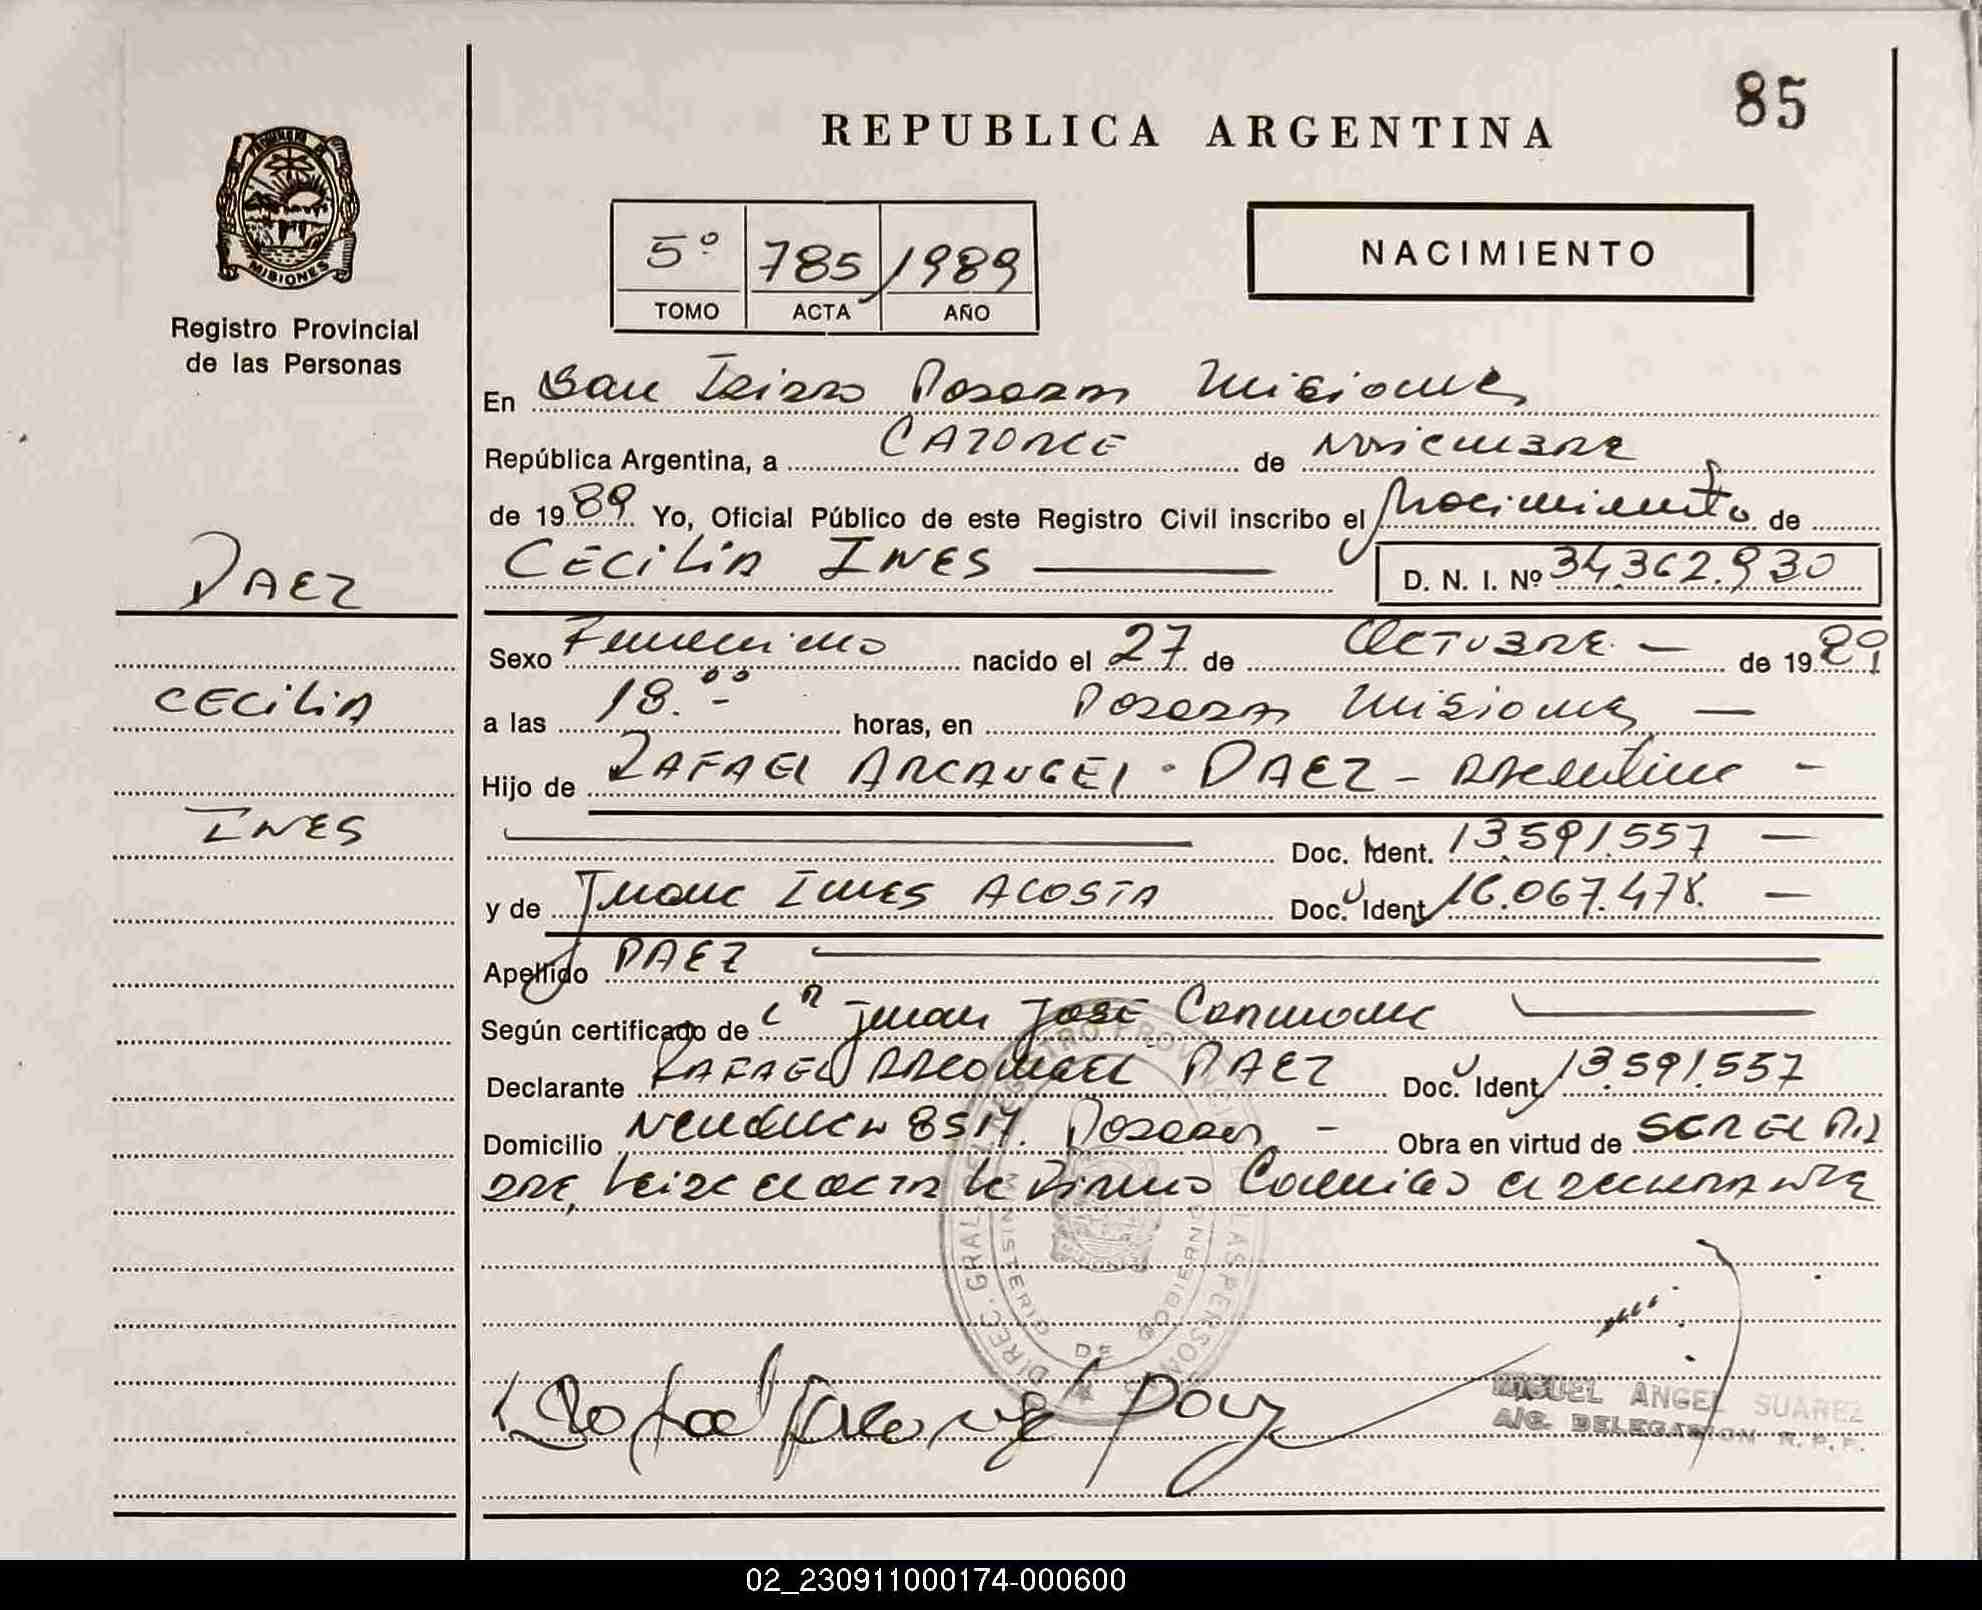 85
REPUBLICA ARGENTINA
5° 785 1989
TOMO ACTA AÑO
NACIMIENTO
MISIONES
Registro Provincial
de las Personas
En San Isidro Posadas Misiones
República Argentina, a CATORCE de Noviembre
de 1989 Yo, Oficial Público de este Registro Civil inscribo el Nacimiento de
CECILIA INES D. N. I. Nº 34.362.930
PAEZ
CECILIA
INES
Sexo Femenino nacido el 27 de OCTUBRE de 1989
a las 18.00 horas, en Posadas Misiones
Hijo de RAFAEL ARCANGEL PAEZ - Argentino -
Doc. Ident. 13.591.557
y de Juana INES ACOSTA Doc. Ident 16.067.478.
Apellido PAEZ
Según certificado de Juan José
Declarante RAFAEL ARCANGEL PAEZ Doc. Ident 13.591.557
Domicilio Neuquen Posadas - Obra en virtud de SER EL PA
DRE, Leida el acta la Firma Conmigo el
DIREC. GRAL. DEL REGISTRO PROVINCIAL DE LAS PERSONAS
MINISTERIO DE GOBIERNO
MISIONES
Rafael Arcangel Paez
MIGUEL ANGEL SUAREZ
A/C. DELEGACION R. P. P.
02_230911000174-000600